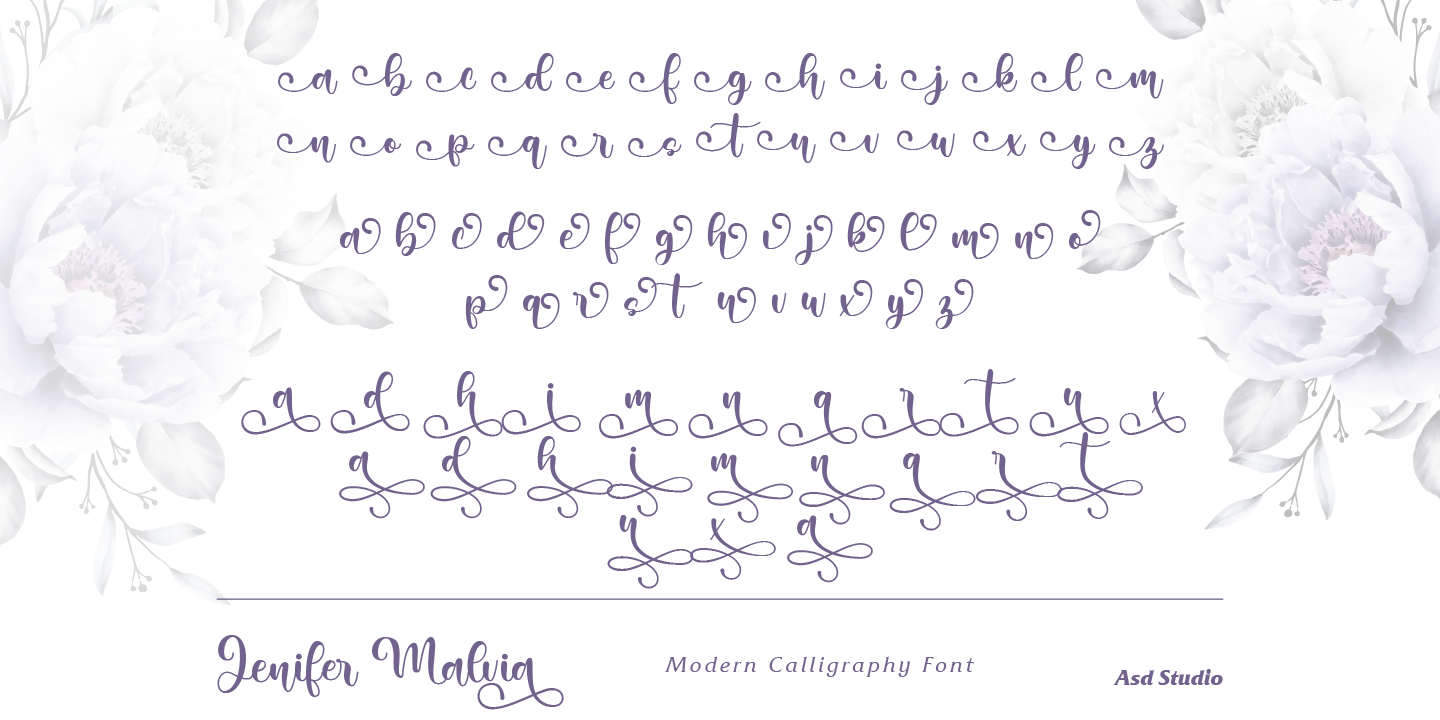 a b c d e f g h i j k l m
n o p q r s t u v w x y z
a b c d e f g h i j k l m n o
p q r s t u v w x y z
a d h i m n q r t u x
a d h i m n q r t
u x a
Jenifer Malvia
Modern Calligraphy Font
Asd Studio